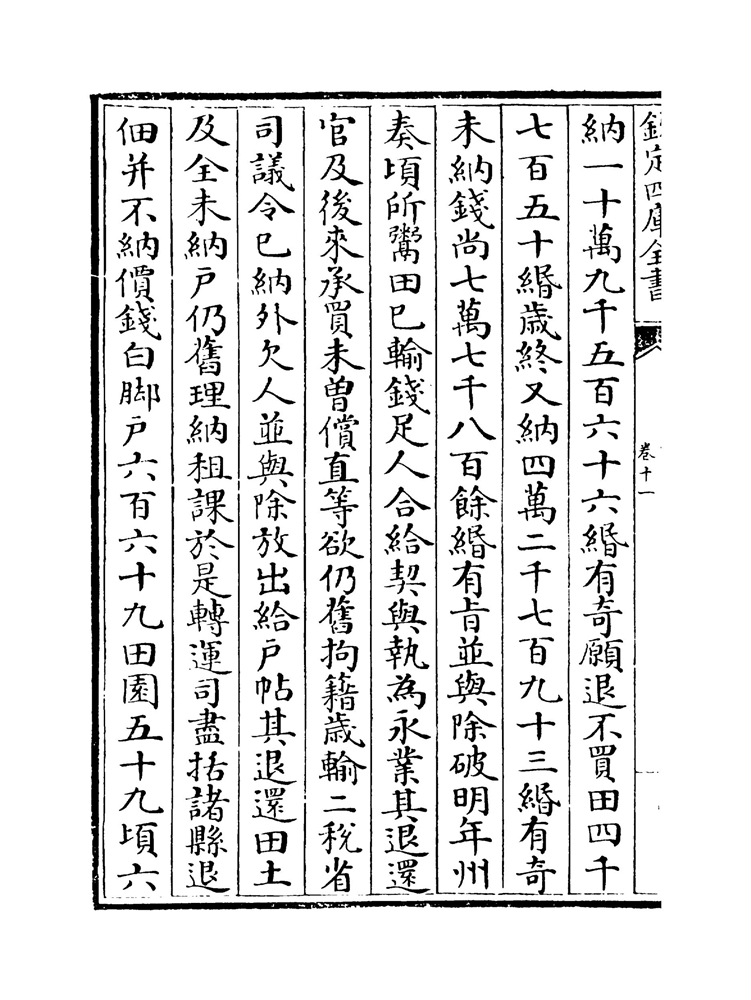 欽定四庫全書
卷十一
納一十萬九千五百六十六緡有奇願退不買田四千
七百五十緡歳終又納四萬二千七百九十三緡有奇
未納錢尚七萬七千八百餘緡有㫖並與除破明年州
奏頃所鬻田已輸錢足人合給契與執為永業其退還
官及後來承買未曽償直等欲仍舊拘籍歳輸二税省
司議令已納外欠人並與除放出給戸帖其退還田土
及全未納戸仍舊理納租課於是轉運司盡括諸縣退
佃并不納價錢白脚戸六百六十九田園五十九頃六